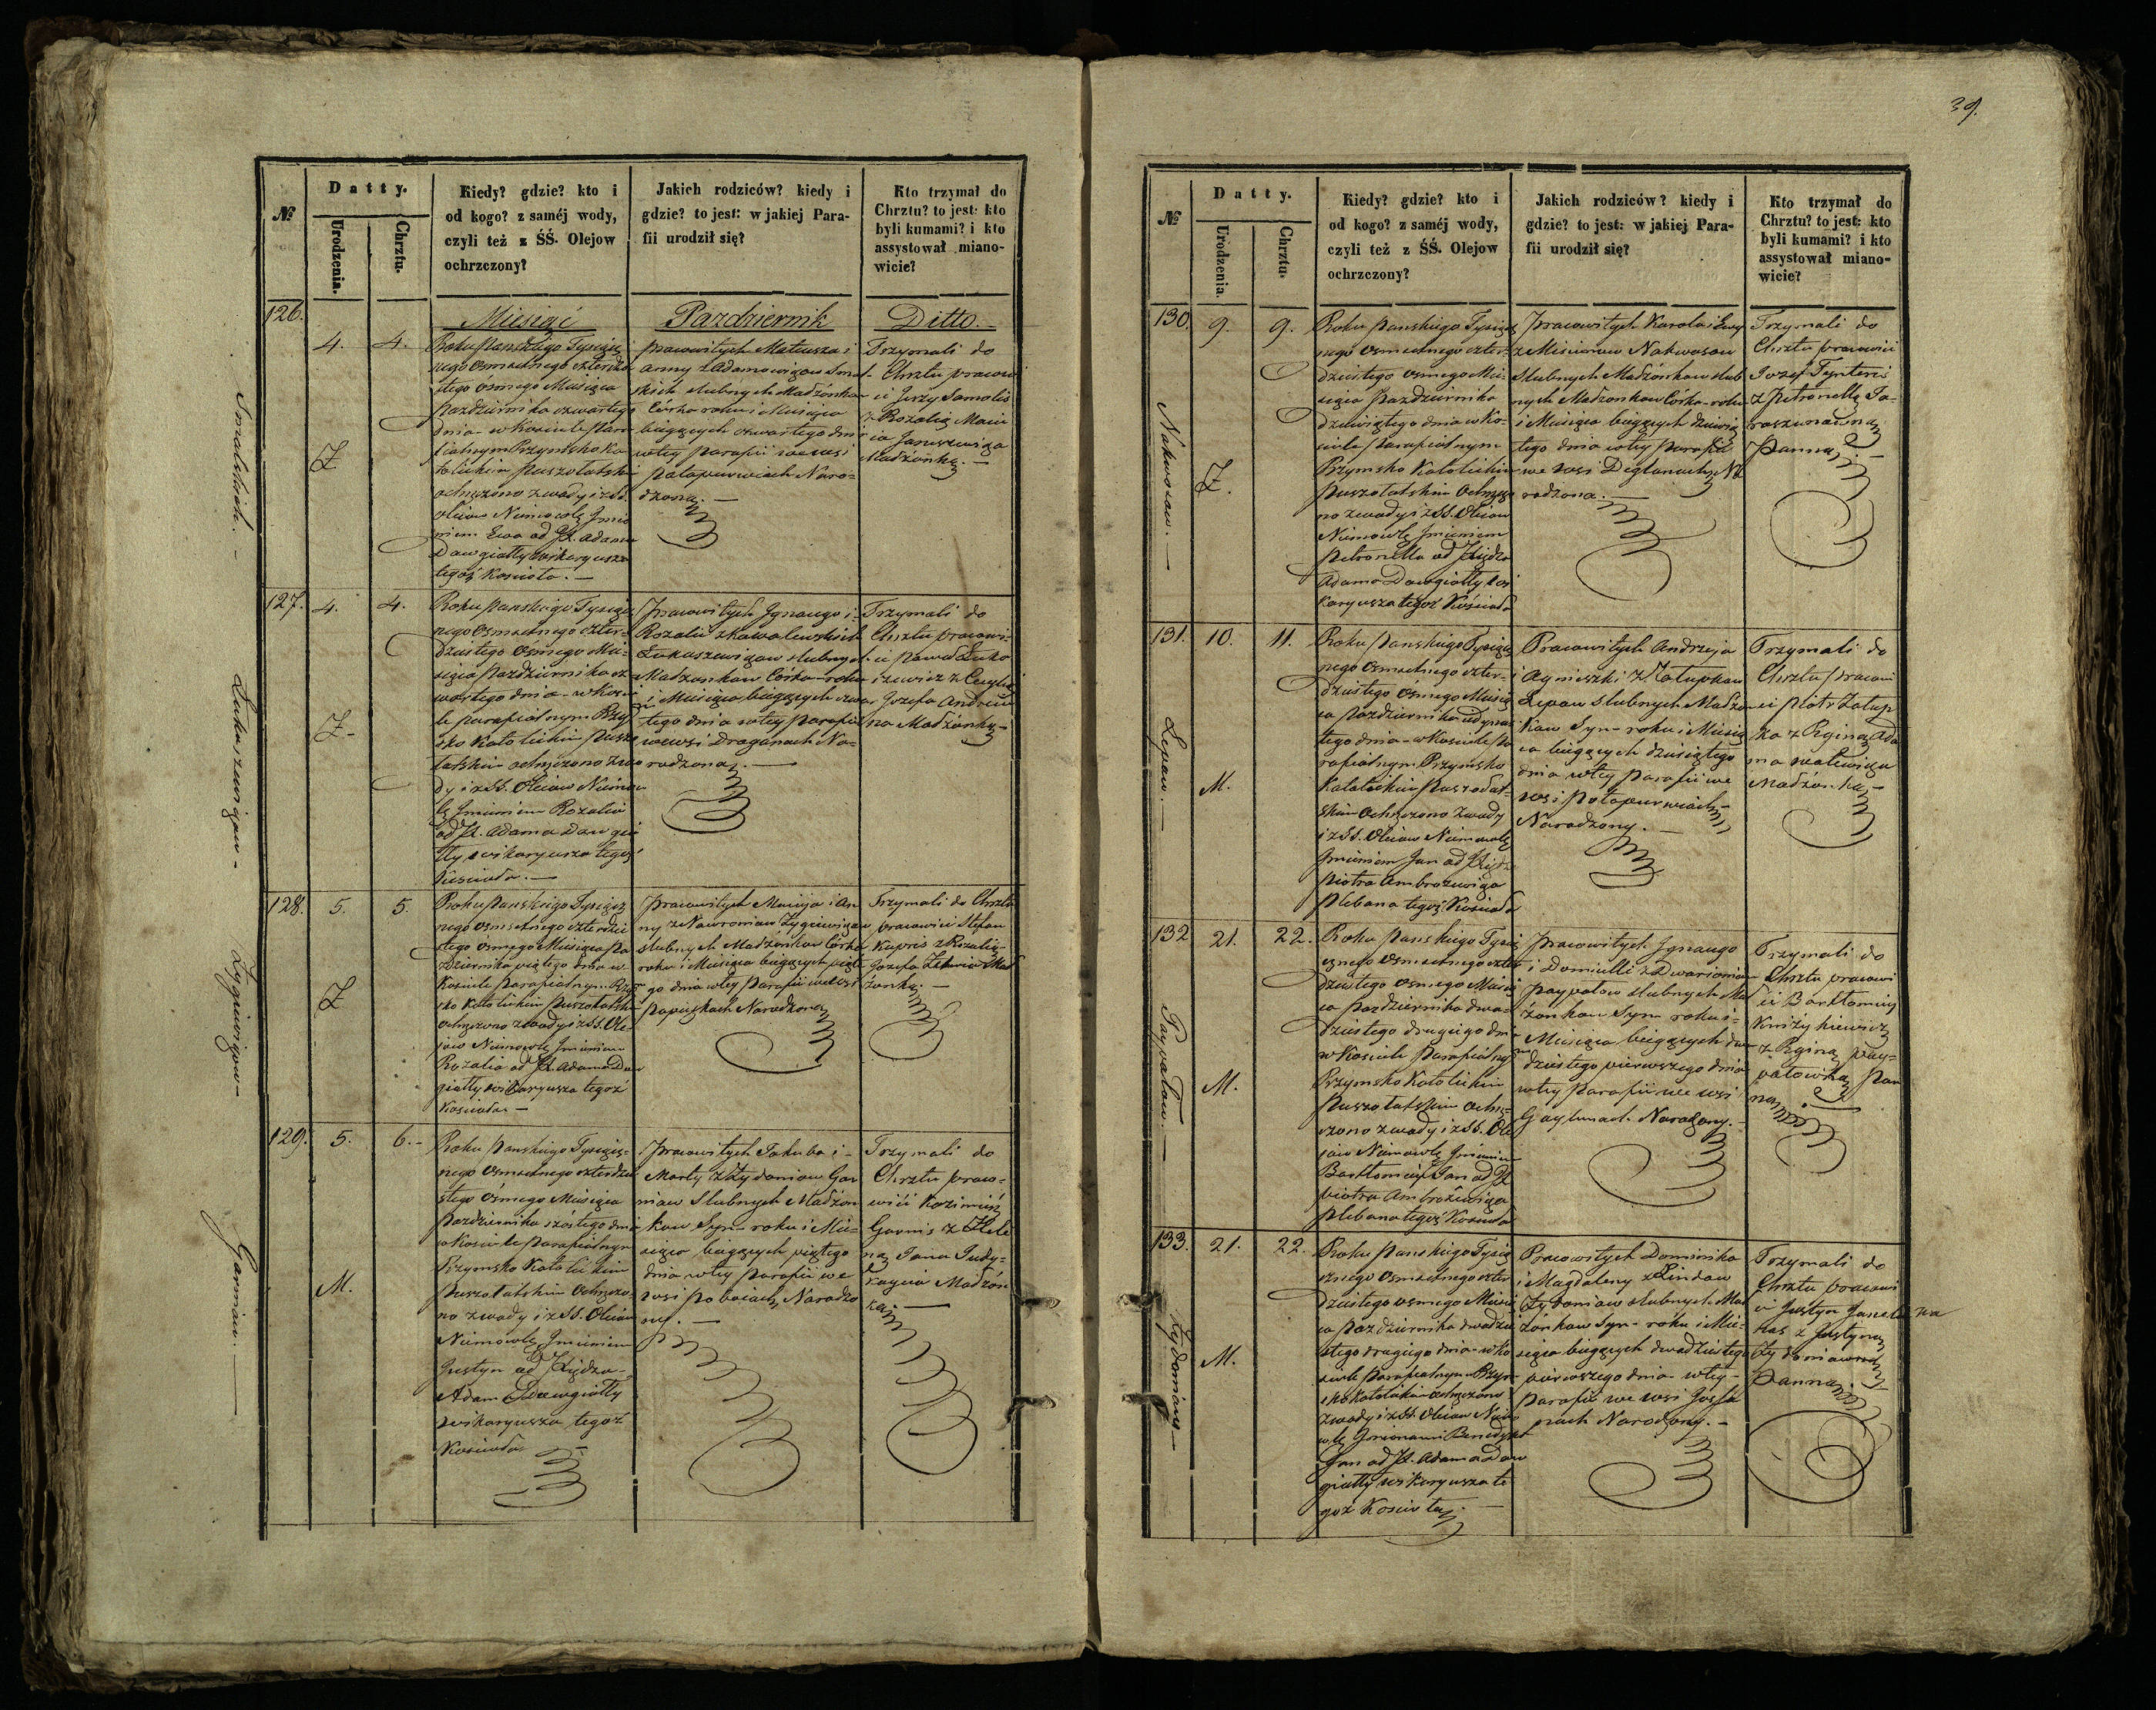 39.
№
Datty.
Urodzenia.
Chrztu.
Kiedy? gdzie? kto i
od kogo? z saméj wody,
czyli też z ŚŚ. Olejow
ochrzczony?
Jakich rodziców? kiedy i
gdzie? to jest: w jakiej Para-
fii urodził się?
Kto trzymał do
Chrztu? to jest: kto
byli kumami? i kto
assystował miano-
wicie?
126.
Miesiąc
Pazdziernik
Ditto.
4.
4.
Ż
Roku Panskiego Tysiącz
nego osmsetnego czterdzie
stego osmego Miesiąca
Pazdziernika czwartego
dnia w Kosciele Para
fialnym Rzymsko Ka
tolickim Puszołatskim
ochrzczono z wody i z SS.
Olejow Niemowlę Imie
niem Ewa od JX. Adama
Dawgiałły wikaryusza
tegoż Koscioła. —
pracowitych Mateusza i
Anny z Adamowiczow
slubnych Madżonkow
Córka roku i Miesiąca
bieżących czwartego dnia
w tey Parafii we wsi
Potopurwiach Naro=
dzona. —
Trzymali do
Chrztu pracowi
ci Jerzy Samolis
z Rozalią Macie
ja Januszewicza
Madżonką. —
127.
4.
4.
Łukaszewiczow —
Ż —
Roku Panskiego Tysiącz
nego osmsetnego czter=
dziestego osmego Mie=
siąca Pazdziernika cz
wartego dnia w Koście
le Parafialnym Rzym
sko Katolickim Pusze
łatskim ochrzczono z wo
dy i z SS. Olejow Niemow
lę Imieniem Rozalia
od JX. Adama Dawgia
łły wikaryusza tegoż
Koscioła. —
Pracowitych Ignacego i
Rozalii z Kowalewskich
Łukaszewiczow slubnych
Madżonkow Córka roku
i Miesiąca bieżących czwar
tego dnia w tey Parafii
we wsi Draganach Na=
rodzona. —
Trzymali do
Chrztu pracowi=
ci Paweł Łuka
szewicz z
Jozefa
Madżonką —
128.
5.
5.
Żygiewiczow —
Ż
Roku Panskiego Tysiącz
nego osmsetnego czterdzie
stego ósmego Miesiąca Pa
zdziernika piątego dnia w
Kosciele Parafialnym Rzym
sko Katolickim Puszołatskim
ochrzczono z wody i z SS. Ole
jow Niemowlę Imieniem
Rozalia od JX. Adama Daw
giałły wikaryusza tegoż
Kosciola —
Pracowitych Macieja i An
ny z Nawroniow Żygiewiczow
slubnych Madżonkow Córka
roku i Miesiąca bieżących piąte
go dnia w tey Parafii we wsi
Papiszkach Narodzona
Trzymali do Chrztu
pracowici Stefan
Kupris z Rozalią
Jozefa
Madżonką. —
129.
5.
6. —
Garniow. —
M.
Roku Panskiego Tysiącz=
nego Osmsetnego czterdzie
stego Ósmego Miesiąca
Pazdziernika szóstego dnia
w Kosciele Parafialnym
Rzymsko Katolickim
Puszołatskim ochrzczo
no z wody i z SS. Olejow
Niemowlę Imieniem
Justyn od Xiędza
Adama Dawgiałły
wikaryusza tegoż
Kosciola
Pracowitych Jakuba i
Marty z Żydoniow Gar
niow Slubnych Madżon
kow Syn roku i Mie=
siąca bieżących piątego
dnia w tey Parafii we
wsi Pobociach Narodzo
ny. —
Trzymali do
Chrztu praco=
wici Kazimierz
Garnis z Hele
ną Jana Judy=
Madżon
ką —
№
Datty.
Urodzenia.
Chrztu.
Kiedy? gdzie? kto i
od kogo? z saméj wody,
czyli też z ŚŚ. Olejow
ochrzczony?
Jakich rodziców? kiedy i
gdzie? to jest: w jakiej Para-
fii urodził się?
Kto trzymał do
Chrztu? to jest: kto
byli kumami? i kto
assystował miano-
wicie?
130.
9.
9.
Nakwosow. —
Ż.
Roku Panskiego Tysiącz
nego Osmsetnego czter=
dziestego osmego Mie=
siąca Pazdziernika
dziewiątego dnia w Ko=
sciele Parafialnym
Rzymsko Katolickim
Puszołatskim Ochrzczo
no z wody i z SS. Olejow
Niemowlę Imieniem
Petronella od Xiędza
Adama Dawgiałły wi
karyusza tegoż Kościoła
Pracowitych Karola i Ewy
z Misiunow Nakwosow
Slubnych Madżonkow
Córka roku
i Miesiąca bieżących dziewią
tego dnia w tey Parafii
we wsi Deglanach Na
rodzona. —
Trzymali do
Chrztu pracowici
Jozef
z Petronellą Ta=
raszunówną
Panną. —
131.
10.
11.
Lepow. —
M.
Roku Panskiego Tysiącz
nego Osmsetnego czter=
dziestego Osmego Miesią
ca Pazdziernika
tego dnia w Kosciele Pa
rafialnym Rzymsko
Katolickim Puszołat=
skim Ochrzczono z wody
i z SS. Olejow Niemowlę
Imieniem Jan od Xiędza
Piotra Ambrozewicza
Plebana tegoż Kosciola
Pracowitych Andrzeja
i Agnieszki z Załupkow
Lepow Slubnych Madżon
kow Syn roku i Miesią
ca bieżących dziesiątego
dnia w tey Parafii we
wsi Potopurwiach
Narodzony. —
Trzymali do
Chrztu Pracowi
ci Piotr Załup
ka z Reginą Ada
ma
Madżonką —
132
21.
22.
Paypałow. —
M.
Roku Panskiego Tysią
cznego Osmsetnego czter
dziestego osmego Miesią
ca Pazdziernika dwa=
dziestego drugiego dnia
w Kosciele Parafialnym
Rzymsko Katolickim
Puszołatskim ochrz=
czono z wody i z SS. Ole
jow Niemowlę Imieniem
Bartłomiey Jan od JX
Piotra Ambrożewicza
Plebana tegoż Kosciola
Pracowitych Ignacego
i Domicelli z Dwarioniow
Paypałow slubnych Mad
żonkow Syn roku i
Miesiąca bieżących dwa
dziestego pierwszego dnia
w tey Parafii we wsi
Gaylunach Narodzony. —
Trzymali do
Chrztu pracowi
ci Bartłomiey
z Reginą Pay=
pałowną Pan
ną.
133.
21.
22.
Żydoniow —
M.
Roku Panskiego Tysią
cznego osmsetnego czter
dziestego osmego Miesią
ca Pazdziernika dwadzie
stego drugiego dnia w Ko
sciele Parafialnym Rzym
sko Katolickim ochrzczono
z wody i z SS. Olejow Niemo
wlę Imionami Benedykt
Jan od JX. Adama Daw
giałły wikaryusza te
goż Kosciola
Pracowitych Dominika
i Magdaleny z Lindow
Żydoniow slubnych Mad
żonkow Syn roku i Mie=
siąca bieżących dwadziestego
pierwszego dnia w tey
Parafii we wsi
Narodzony. —
Trzymali do
Chrztu pracowi
ci Justyn
z Justyną
Żydoniowną
Panną